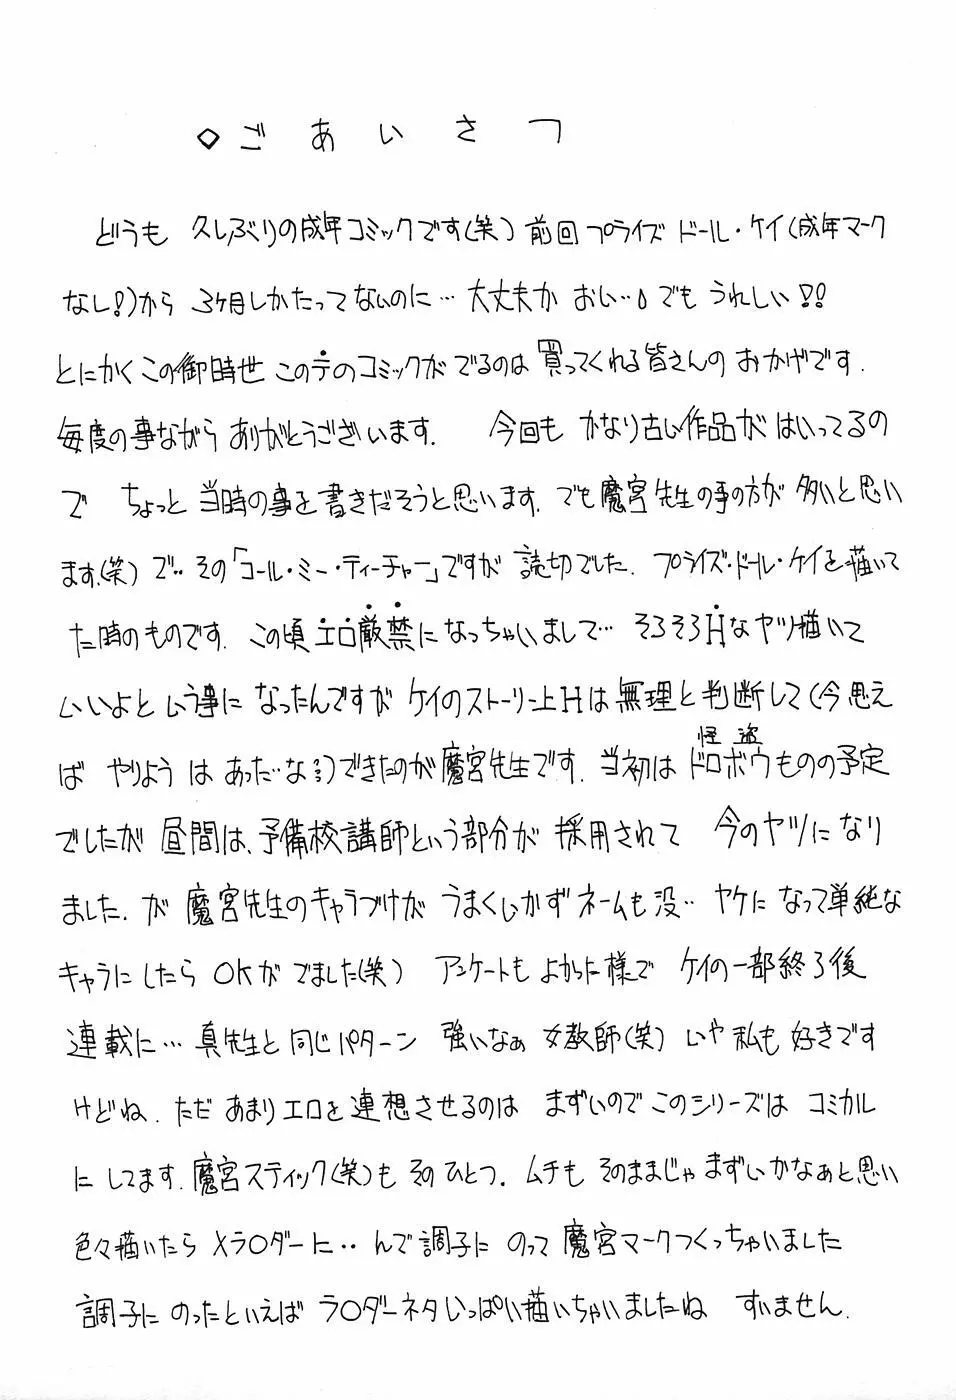 ◇ごあいさつ
どうも 久しぶりの成年コミックです(笑) 前回 プライズ ドール・ケイ(成年マーク
なし!)から 3ヶ月しかたってないのに… 大丈夫か おい…。でも うれしい!!
とにかくこの御時世 この手のコミックが でるのは 買ってくれる皆さんの おかげです.
毎度の事ながら ありがとうございます. 今回も かなり古い作品が はいってるの
で ちょっと 当時の事を 書きだそうと思います. でも 魔宮先生の事の方が 多いと思い
ます.(笑) で‥ その「コール・ミー・ティーチャー」ですが 読切でした. プライズ・ドール・ケイを描いて
た時のものです. この頃 エロ厳禁になっちゃいまして… そろそろHなヤツ描いて
いいよと いう事に なったんですが ケイのストーリー上Hは 無理と 判断して(今思え
ば やりよう は あった‥な…)できたのが 魔宮先生です. 当初は ドロボウ(怪盗)ものの予定
でしたが 昼間は、予備校講師という部分が 採用されて 今のヤツになり
ました. が 魔宮先生のキャラづけが うまくいかず ネームも没‥ ヤケに なって単純な
キャラに したら OKが でました(笑) アンケートも よかった様で ケイの一部終了後
連載に… 真先生と 同じパターン 強いなぁ 女教師(笑) いや 私も 好きです
けどね. ただ あまりエロを 連想させるのは まずいので このシリーズは コミカル
に してます. 魔宮スティック(笑)も そのひとつ. ムチも そのままじゃ まずいかなぁと 思い
色々描いたら メラ○ダーに‥ んで 調子に のって 魔宮マークつくっちゃいました
調子に のったといえば ラ○ダーネタ いっぱい描いちゃいましたね すいません.